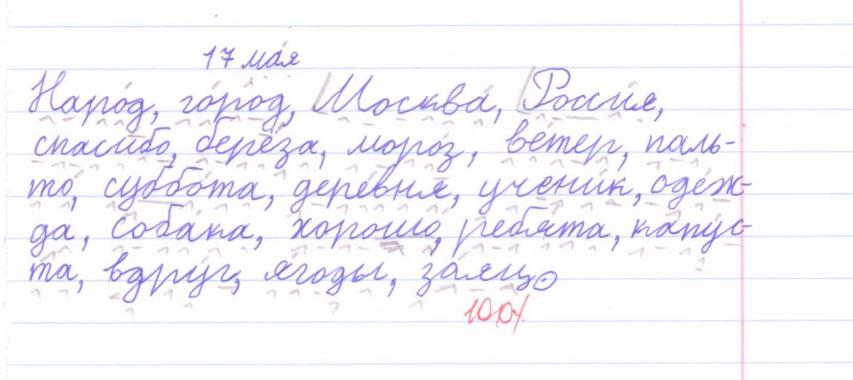 17 мая
Народ, город, Москва, Россия,
спасибо, берёза, мороз, ветер, паль-
то, суббота, деревня, ученик, одеж-
да, собака, хорошо, ребята, капус-
та, вдруг, ягоды, заяц.